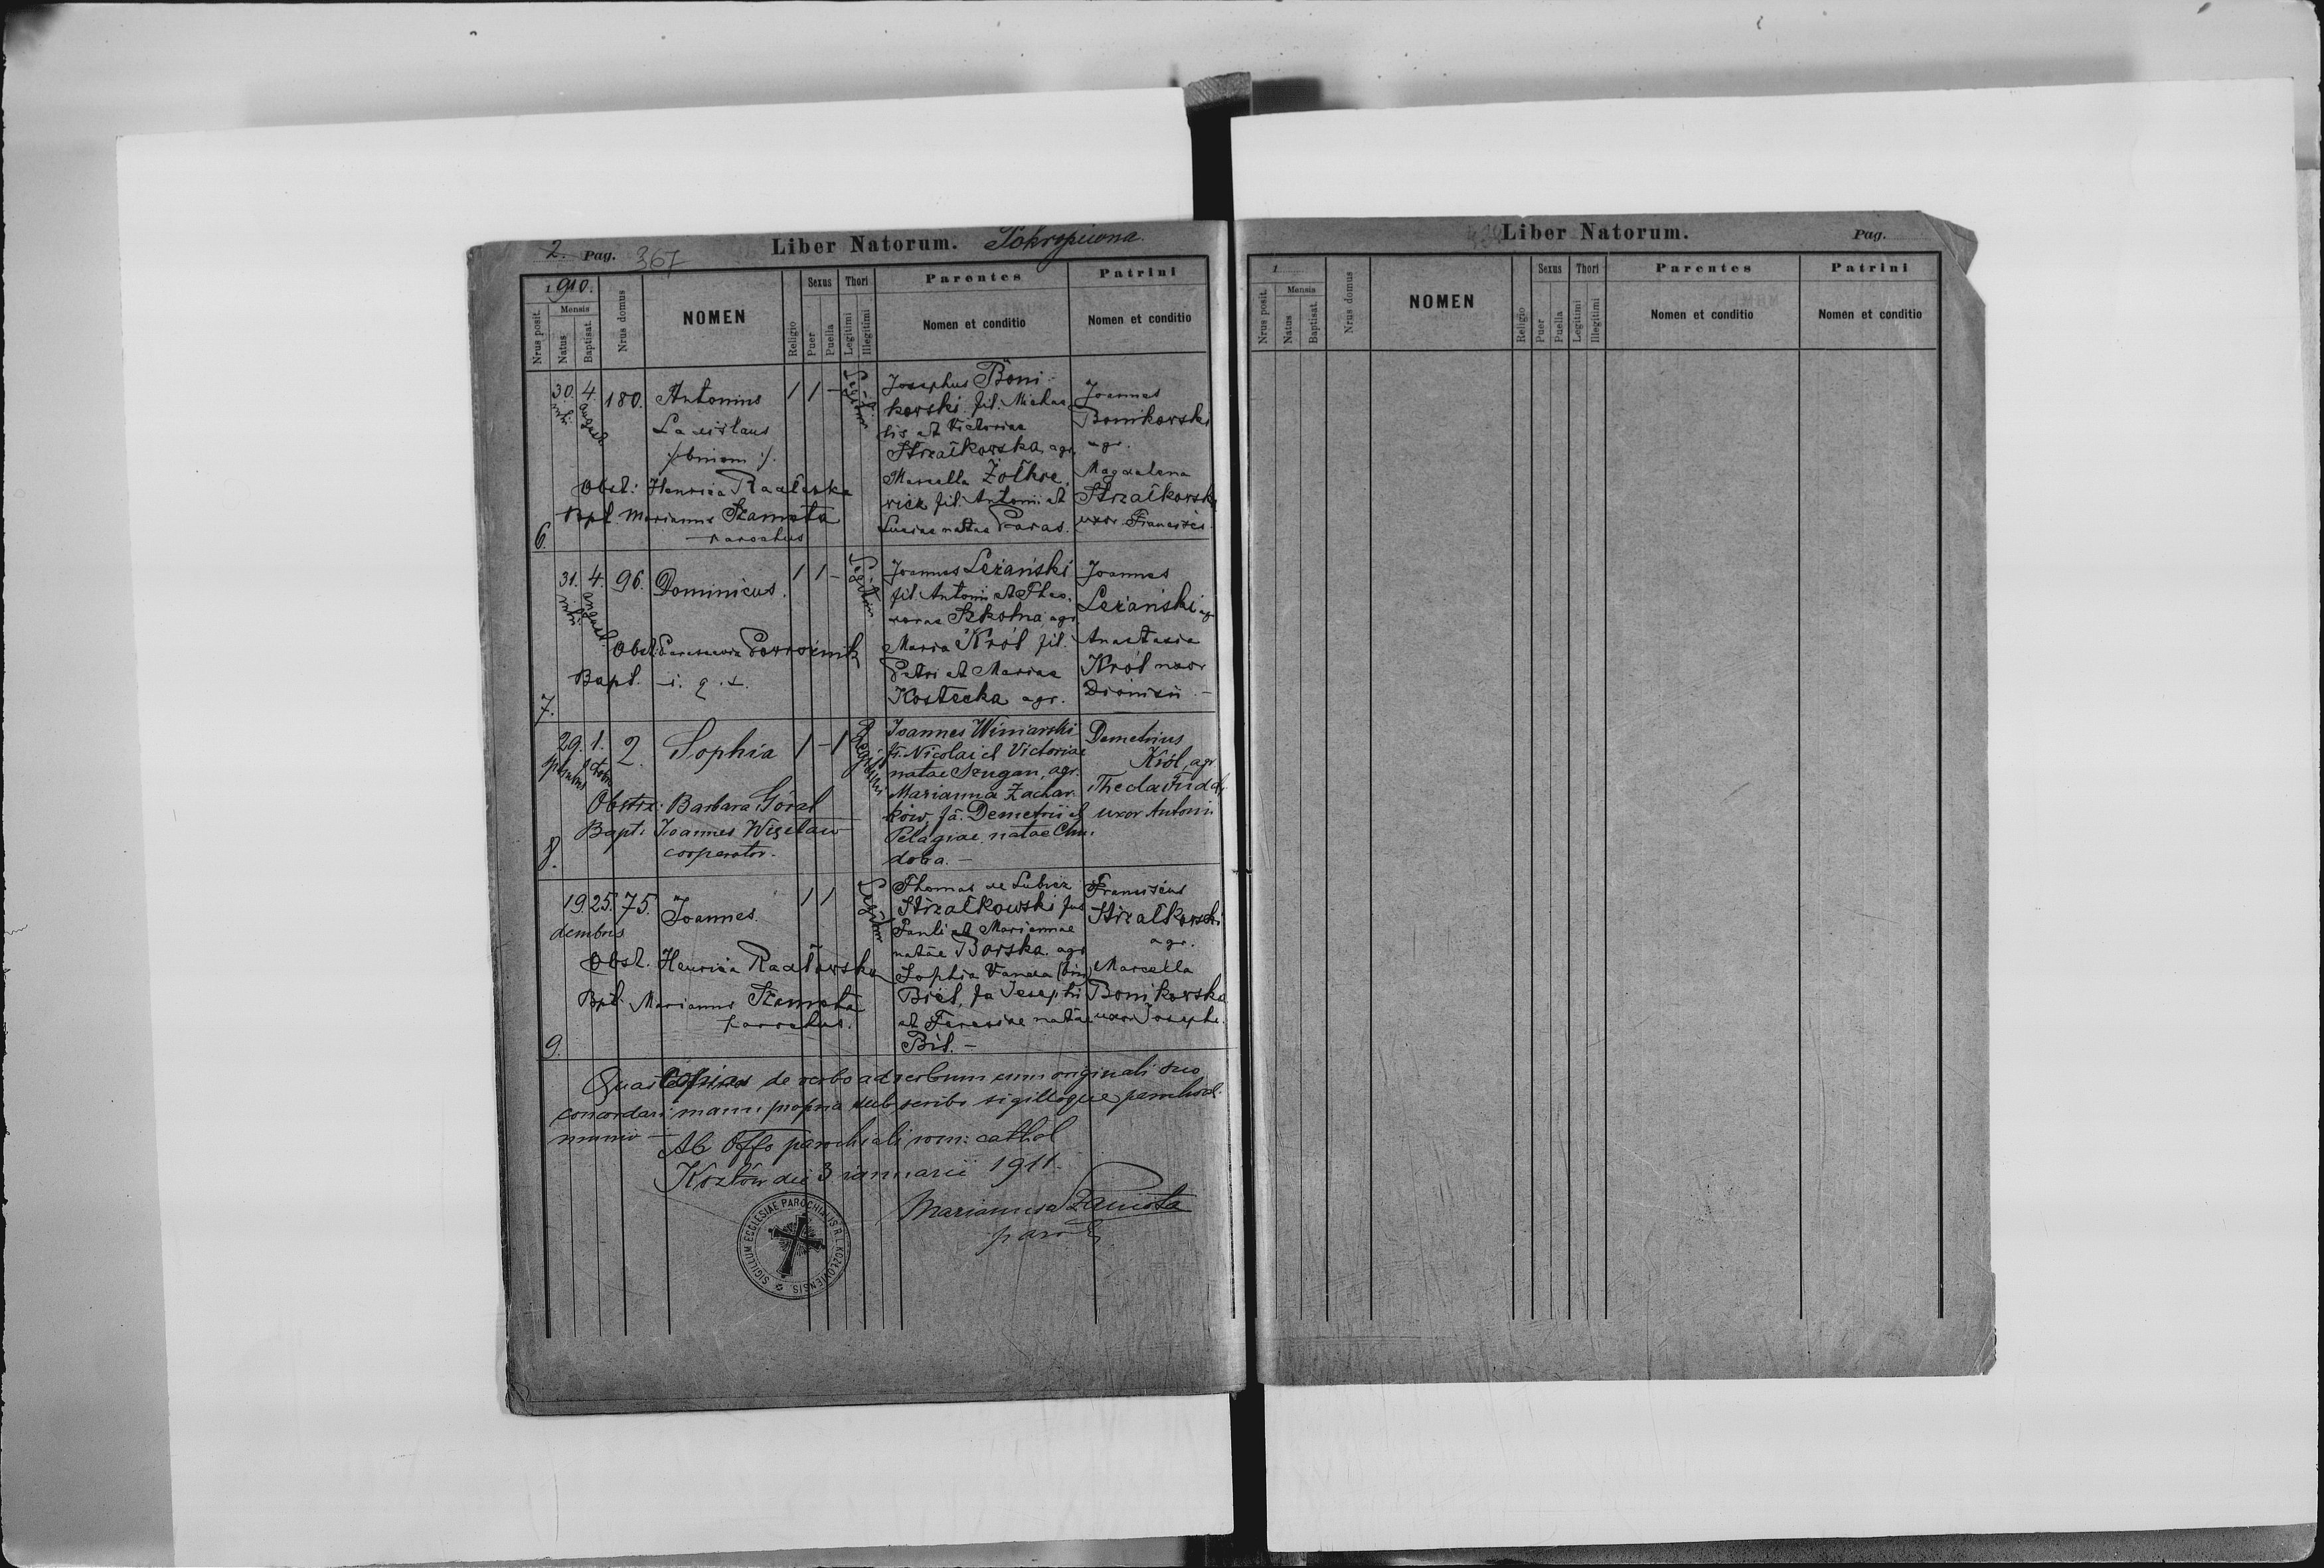 2. Pag. 367 Liber Natorum. Pokropiwna
1910.
Nrus posit.
Mensis
Natus
Baptisat.
Nrus domus
NOMEN
Religio
Sexus
Puer
Puella
Thori
Legitimi
Illegitimi
Parentes
Nomen et conditio
Patrini
Nomen et conditio
6.
30. julii
4. august
180.
Antonius
Ladislaus
/: binom :/.
1 1 -
Legitimi
Obst: Henrica Radłowska
Bpt. Marianus Szamota
parochus
Josephus Boni-
kowski fil. Michae-
lis et Victoriae
Strzałkowska, agr.
Marcella Żółkie-
wicz fil. Antoni et
Luciae natae Paras.
Joannes
Bonikowski
agr.
Magdalena
Strzałkowska
uxor Francisci
7.
31. julii
4. august.
96.
Dominicus.
1 1 -
Legitimi
Obst. Parascevia Powroźnik
Bapt. i. q. s.
Joannes Leżański
fil Antoni et Theo-
dorae Szkolna, agr
Maria Król fil.
Petri et Mariae
Kostecka agr.
Joannes
Leżański agr
Anastasia
Król uxor
Dionisii -
8.
29.
1.
2.
Sophia
1 - 1
Obstrx: Barbara Góral
Bapt: Joannes Więcław
cooperator.
Joannes Winiarski
fs. Nicolai et Victoriae
natae Szugan, agr.
Marianna Zachar-
ków, fa. Demetrii et
Pelagiae natae Chu-
doba. -
Demetrius
Król, agr
Thecla
uxor Antoni
9.
19. 25. 75.
dembris
Joannes.
1 1
Legitimi
Obst. Henrica Radłowska
Bpt. Marianus Szamota
parochus.
Thomas de Lubicz
Strzałkowski fus
Pauli et Mariannae
natae Borska agr
Sophia Vanda (bin)
Biel, fa Josephi
et Teresiae natae
Bil. -
Franciscus
Strzałkowski
agr.
Marcella
Bonikowska
uxor Josephi.
Quas copias de verbo ad verbum cum originali suo
concordari manu propria subscribo sigilloque parochial.
munio -
Ab Offo parochiali rom: cathol
Kozłów die 3 ianuarii 1911.
Marianus Szamota
paroch
SIGILLUM ECCLESIAE PAROCHIALIS R. L. KOZŁOVIENSIS
Liber Natorum. Pag.
1
Nrus posit.
Mensis
Natus
Baptisat.
Nrus domus
NOMEN
Religio
Sexus
Puer
Puella
Thori
Legitimi
Illegitimi
Parentes
Nomen et conditio
Patrini
Nomen et conditio